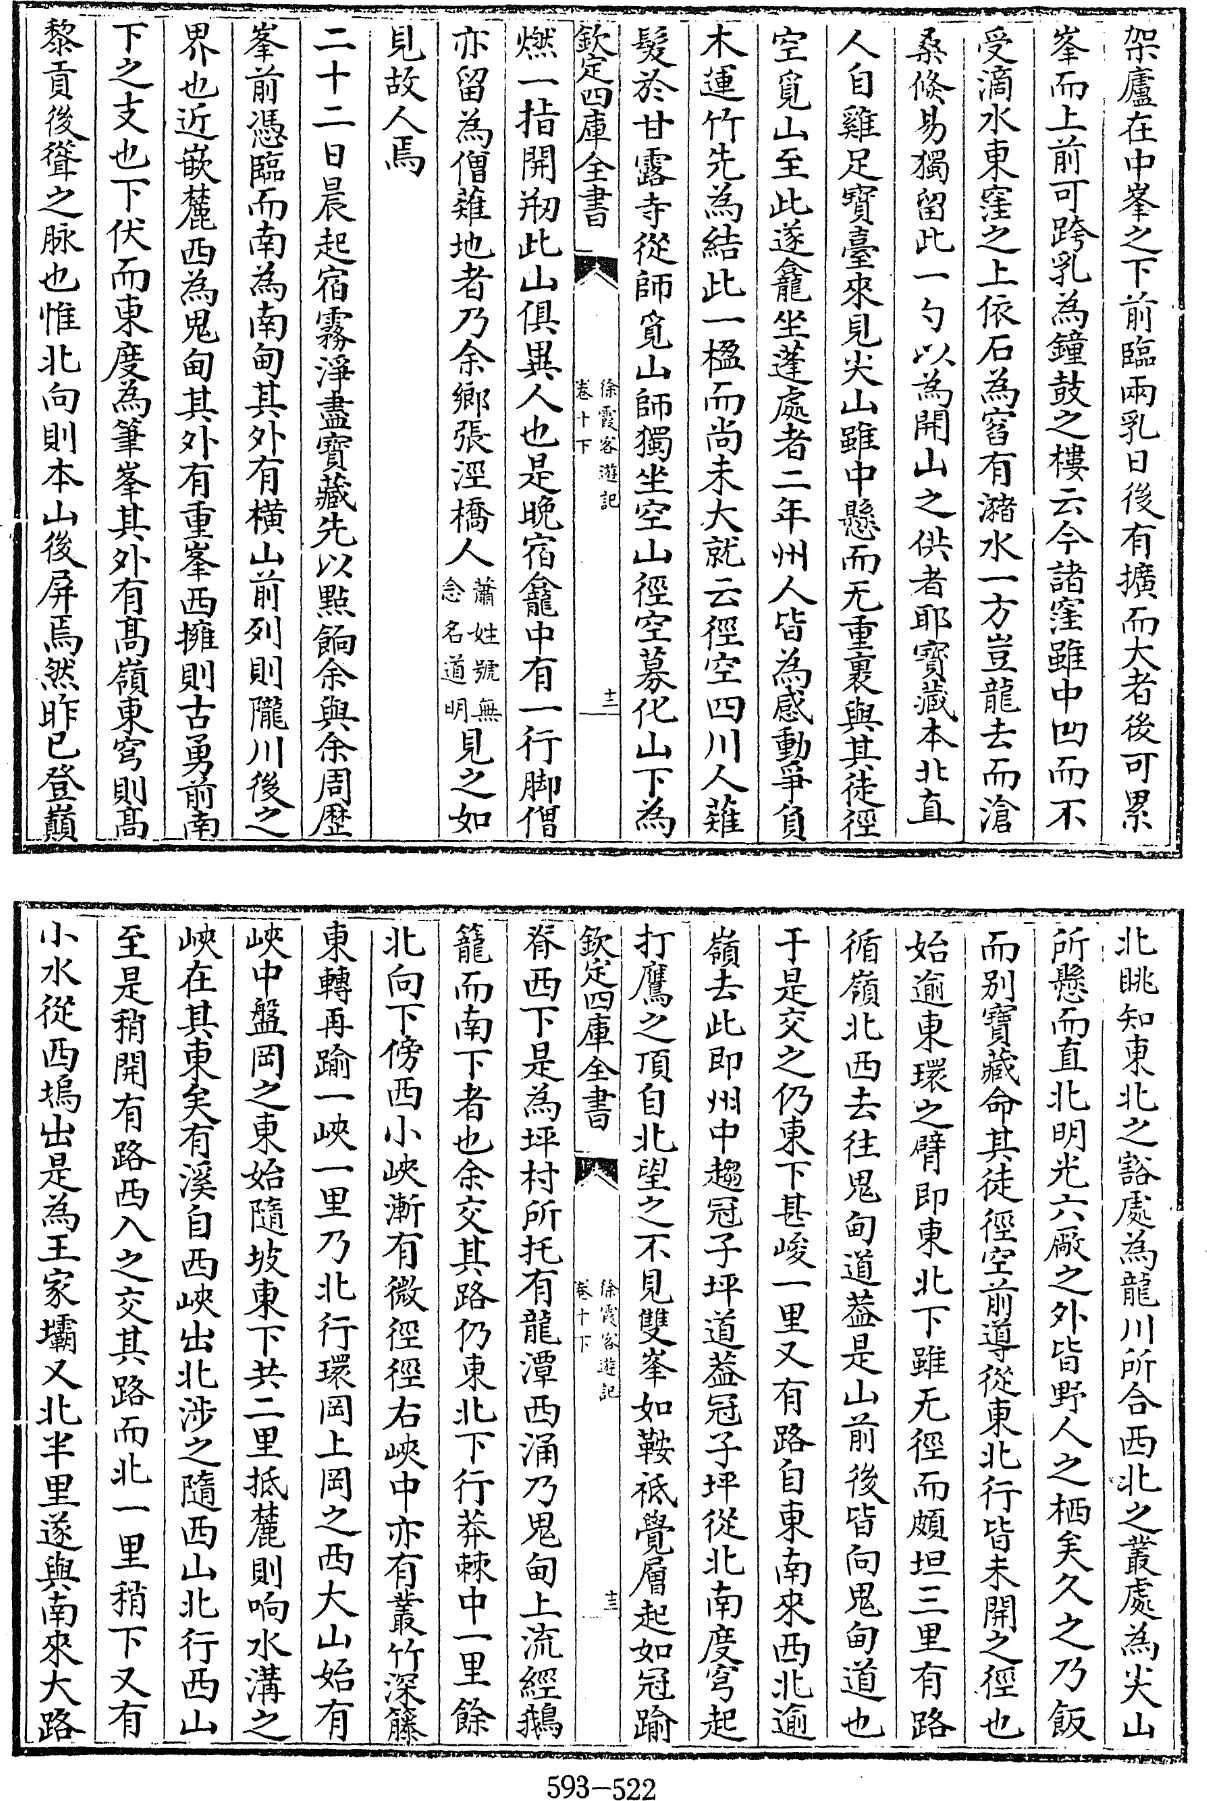 架廬在中峯之下前臨兩乳日後有擴而大者後可累
峯而上前可跨乳為鐘鼓之樓云今諸窪雖中凹而不
受滴水東窪之上依石為窞有瀦水一方豈龍去而滄
桑倐易獨留此一勺以為開山之供者耶寳藏本北直
人自雞足寳臺來見尖山雖中懸而无重裹與其徒徑
空覓山至此遂龕坐蓬處者二年州人皆為感動爭負
木運竹先為結此一楹而尚未大就云徑空四川人薙
髮於甘露寺從師覓山師獨坐空山徑空募化山下為
欽定四庫全書
徐霞客遊記
卷十下
十二
燃一指開剏此山俱異人也是晚宿龕中有一行脚僧
亦留為僧薙地者乃余鄉張涇橋人蕭姓號無念名道明見之如
見故人焉
二十二日晨起宿霧淨盡寳藏先以點餉余與余周歴
峯前憑臨而南為南甸其外有横山前列則隴川後之
界也近嵌麓西為鬼甸其外有重峯西擁則古勇前南
下之支也下伏而東度為筆峯其外有髙嶺東穹則髙
黎貢後聳之脉也惟北向則本山後屏焉然昨已登巔
北眺知東北之豁處為龍川所合西北之叢處為尖山
所懸而直北明光六廠之外皆野人之栖矣久之乃飯
而别寳藏命其徒徑空前導從東北行皆未開之徑也
始逾東環之臂即東北下雖无徑而頗坦三里有路
循嶺北西去往鬼甸道葢是山前後皆向鬼甸道也
于是交之仍東下甚峻一里又有路自東南來西北逾
嶺去此即州中趨冠子坪道葢冠子坪從北南度穹起
打鷹之頂自北望之不見雙峯如鞍祗覺層起如冠踰
欽定四庫全書
徐霞客遊記
卷十下
十三
脊西下是為坪村所托有龍潭西涌乃鬼甸上流經鵝
籠而南下者也余交其路仍東北下行莽棘中一里餘
北向下傍西小峽漸有微徑徑右峽中亦有叢竹深籐
東轉再踰一峽一里乃北行環岡上岡之西大山始有
峽中盤岡之東始隨坡東下共二里抵麓則响水溝之
峽在其東矣有溪自西峽出北涉之隨西山北行西山
至是稍開有路西入之交其路而北一里稍下又有
小水從西塢出是為王家壩又北半里遂與南來大路
593-522